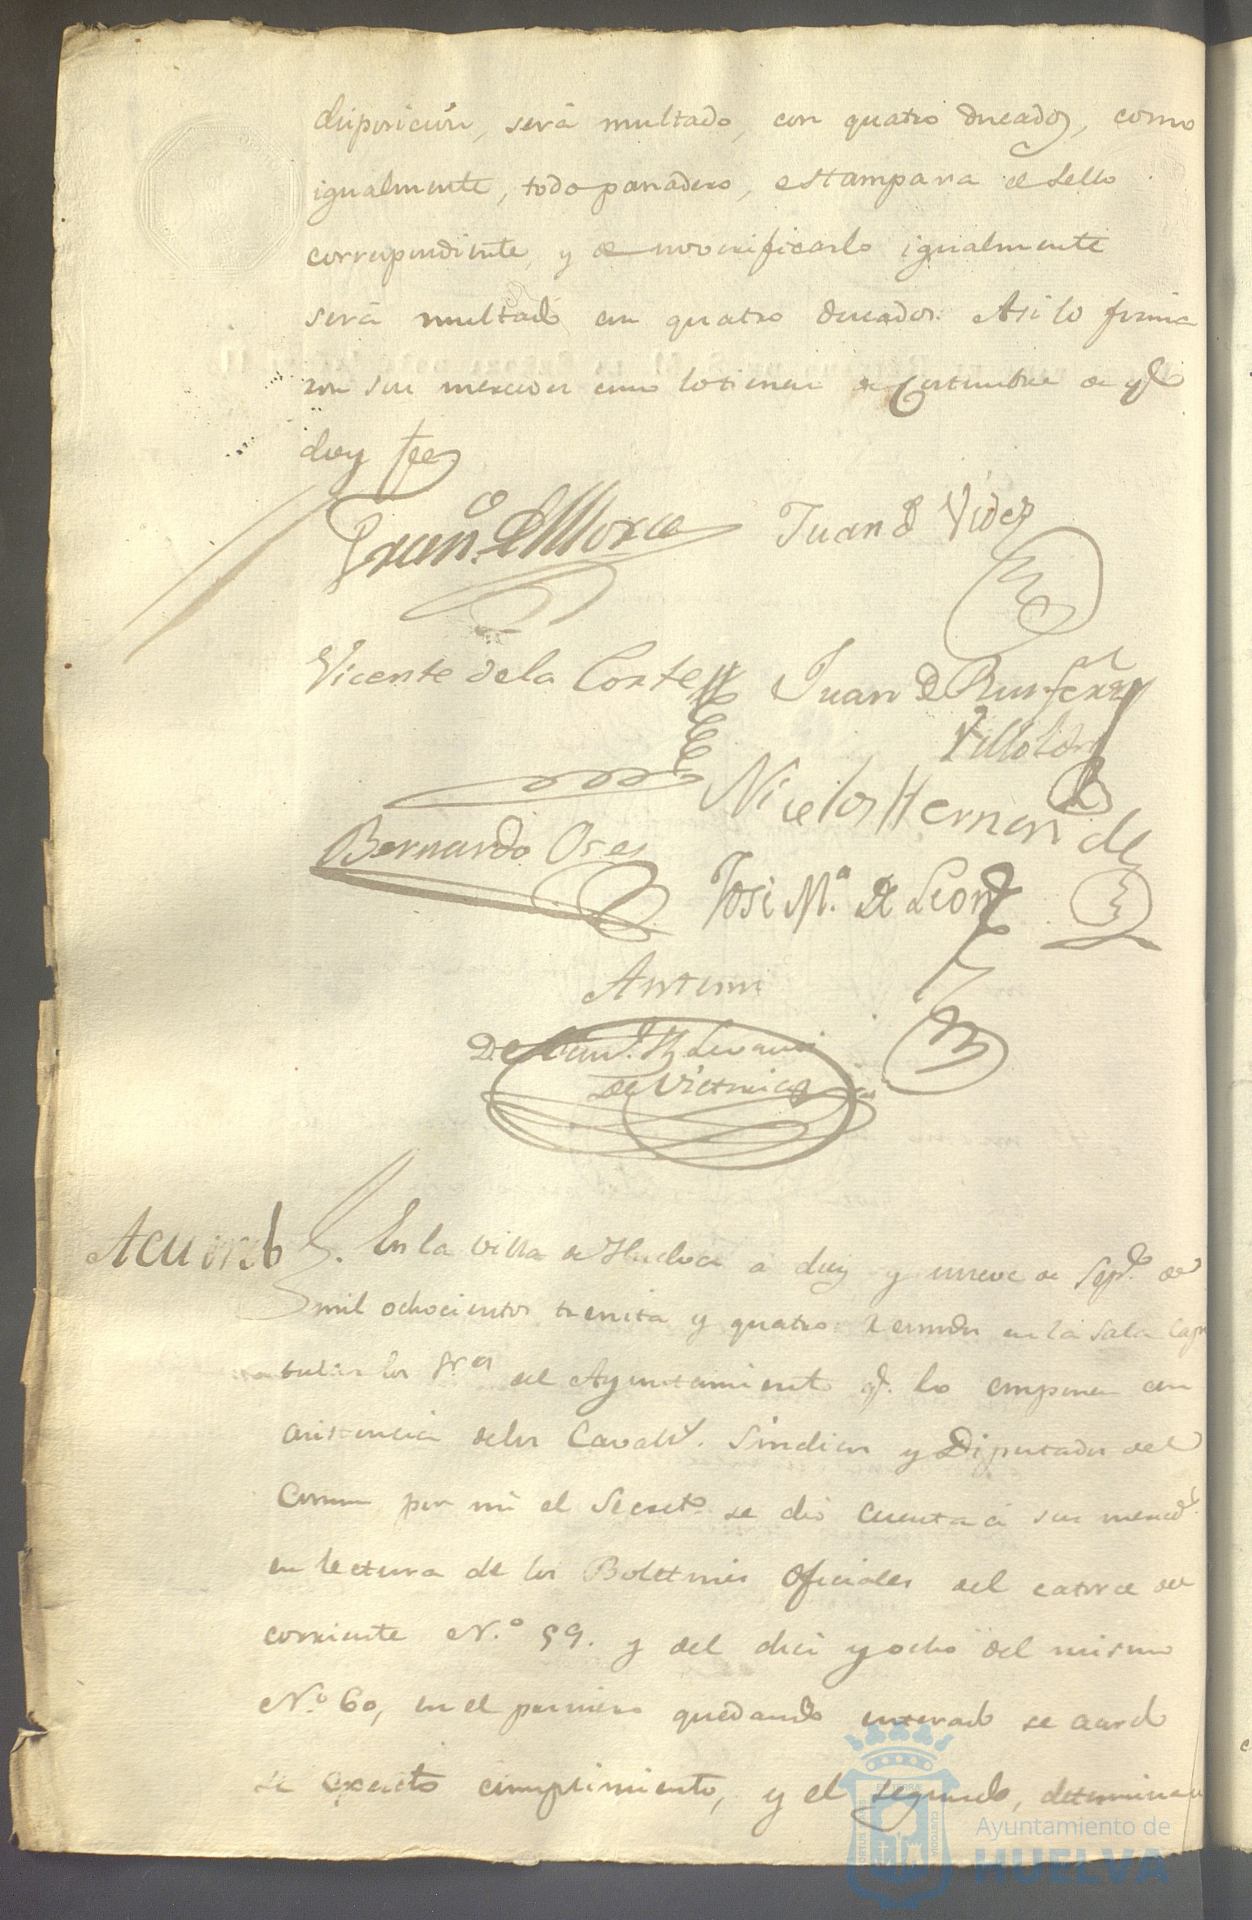 disposicion, será multado, con quatro ducados, como
igualmente, todo panadero, estampara el sello
correspondiente, y de no verificarlo igualmente
será multado en quatro ducados. Asi lo firma
ron sus mercedes como lo tienen de Costumbre de qe
doy fee
Franco. de Mora
Juan de Videz
Vicente de la Corte
Juan de
Villolon
Nicolos Hernandez
Bernardo Oses
José Ma. de Leon
Antemi
Acuerdo
En la villa de Huelva a diez y nueve de Sepe. de
mil ochocientos treinta y quatro. Reunidos en la sala Capi
tular los Sres del Ayuntamiento q. lo componen con
asistencia de los Cavalls. Sindicos y Diputados del
Comun por mi el Secreto. se dió cuenta a sus merceds.
en lectura de los Boletines Oficiales del catorce del
corriente N.º 59. y del diez y ocho del mismo
N.º 60, en el primero quedando enterado se acordo
se exacto cumplimiento, y el segundo, determinan
Ayuntamiento de
HUELVA